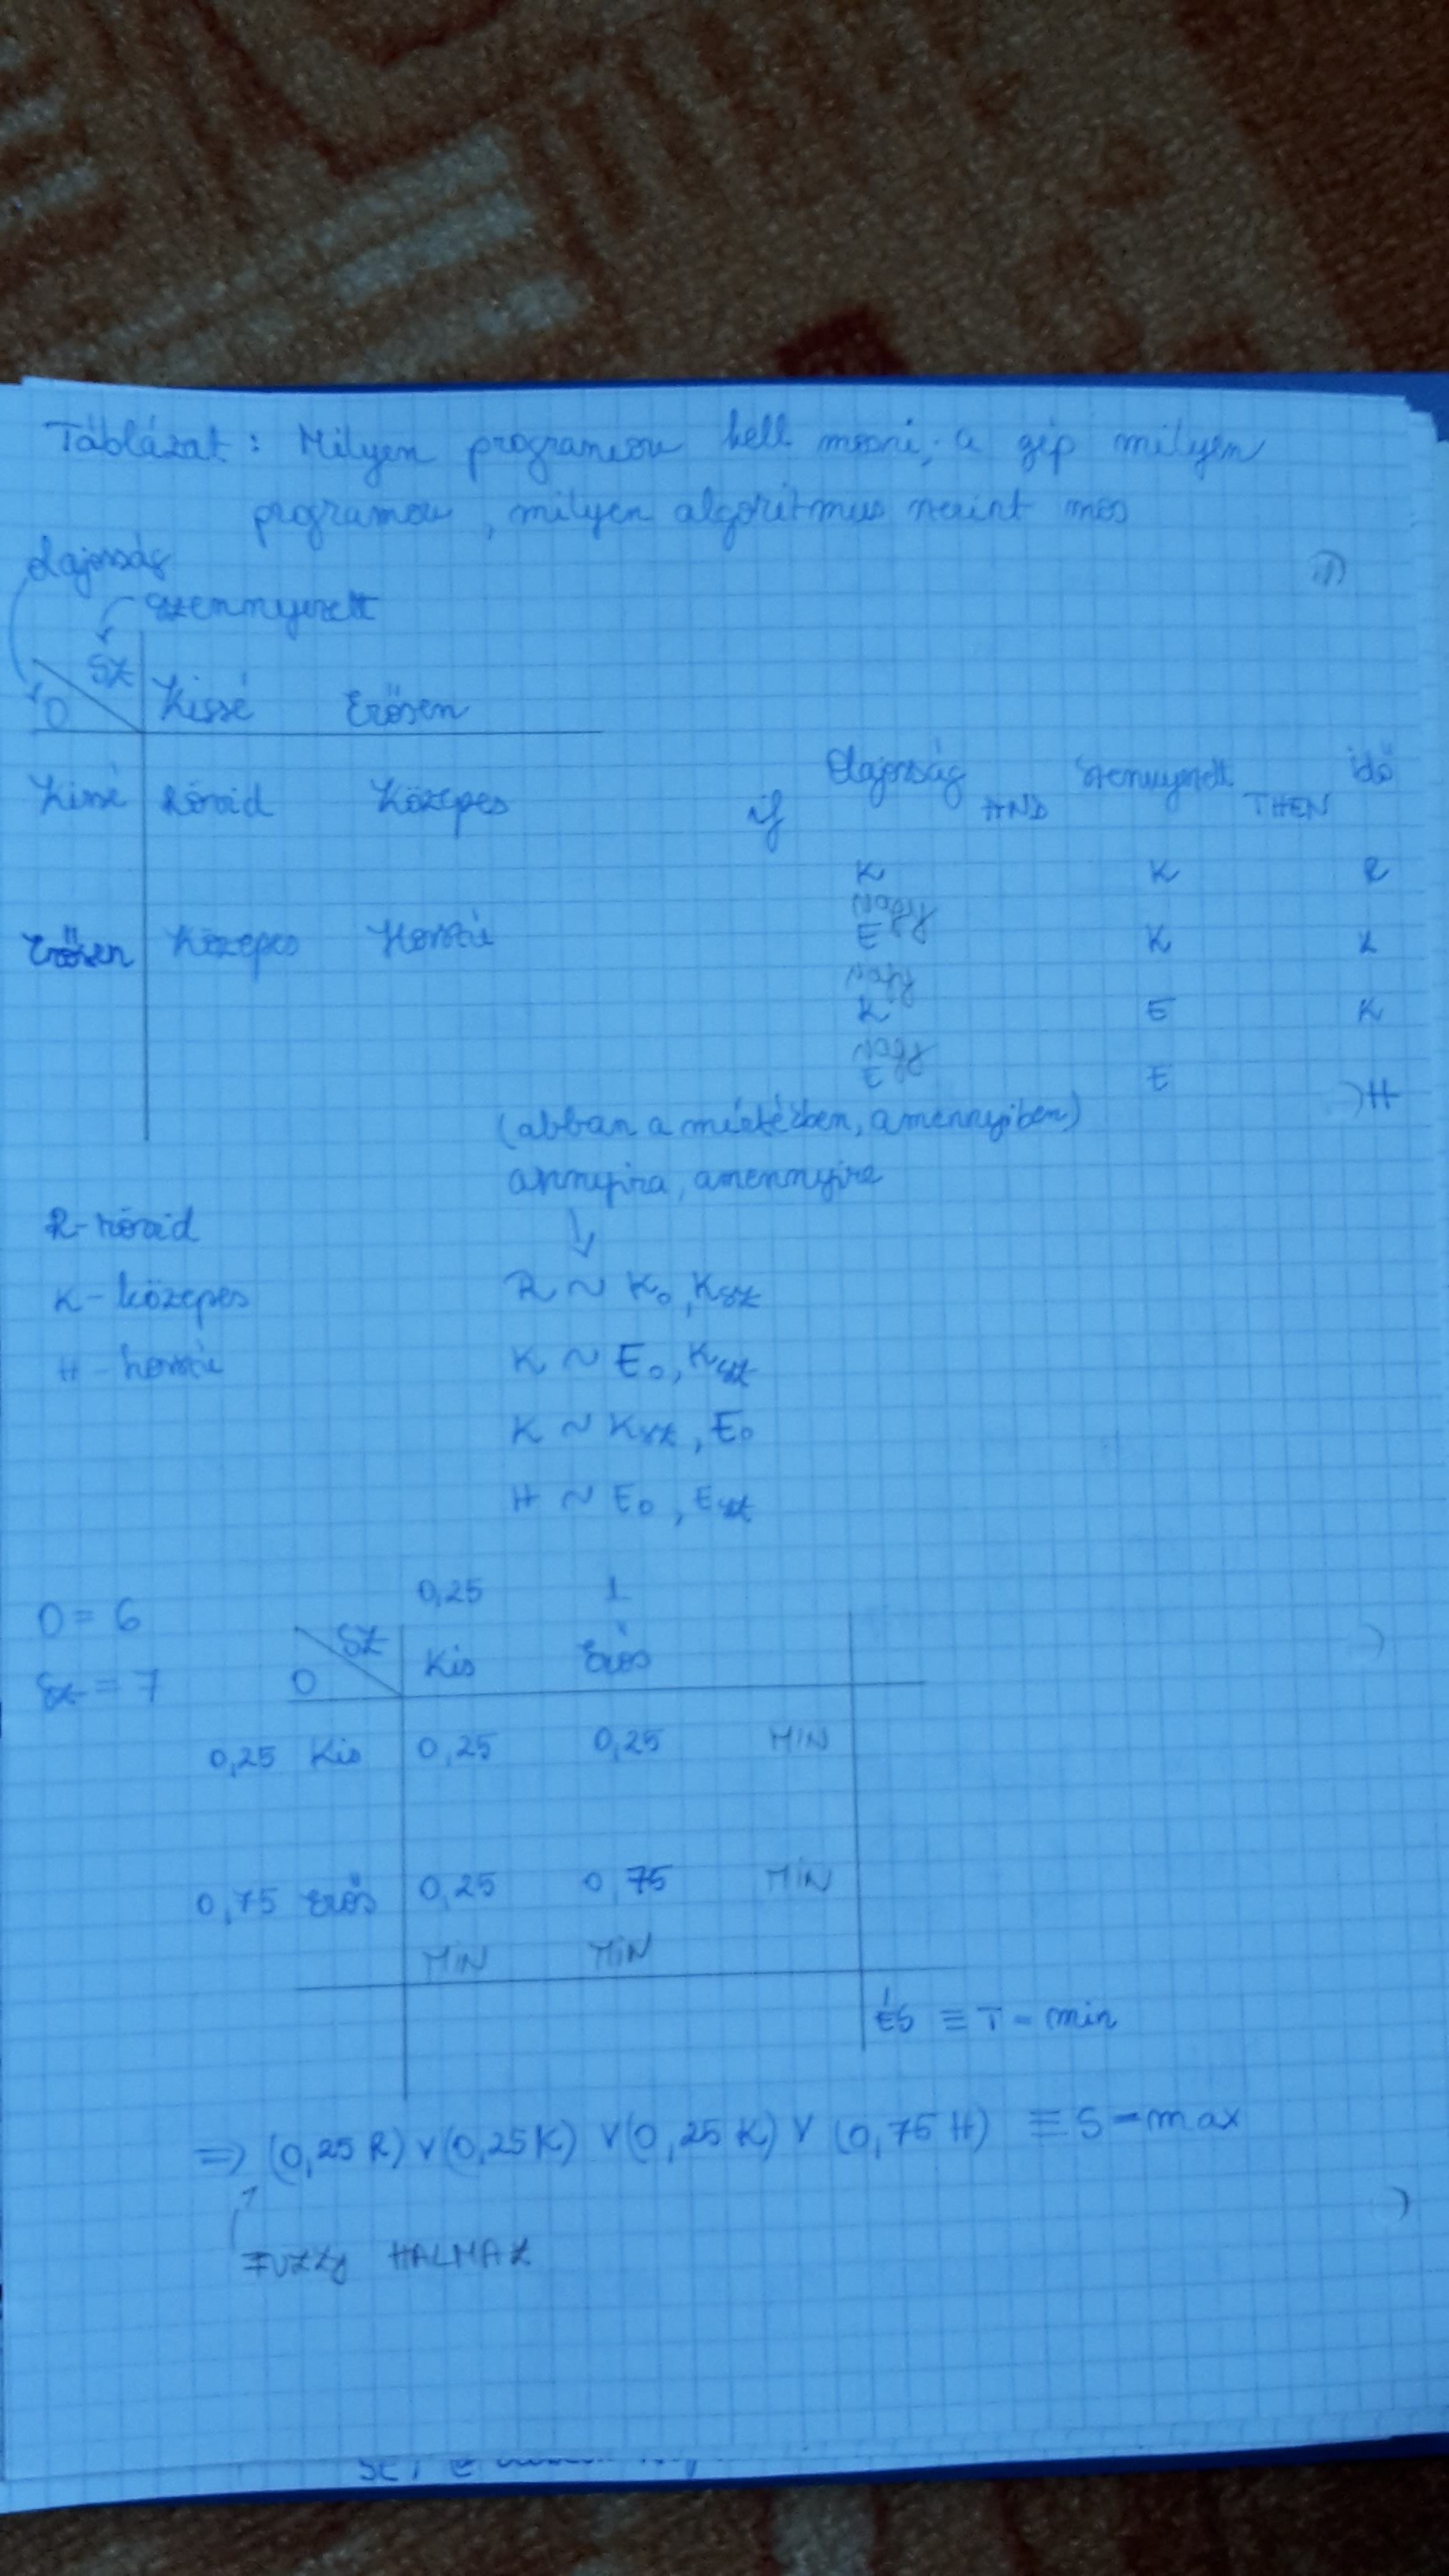 Táblázat: Milyen programon kell mosni, a gép milyen
programon, milyen algoritmus szerint mos
olajosság
szennyezett
1
Sz
O
Kissé Erősen
Kissé Rövid Közepes
Erősen Közepes Hosszú
if Olajosság AND szennyezett THEN idő
K K R
vagy
E K K
vagy
K E K
vagy
E E H
(abban a mértékben, amennyiben)
annyira, amennyire
R - rövid
K - közepes
H - hosszú
R ~ Ko, Ksz
K ~ Eo, Ksz
K ~ Ksz, Eo
H ~ Eo, Esz
O = 6
Sz = 7
0,25 1
Sz
O
Kis Erős
0,25 Kis 0,25 0,25 MIN
0,75 Erős 0,25 0,75 MIN
MIN MIN
ÉS ≡ T - min
⇒ (0,25 R) ∨ (0,25 K) ∨ (0,25 K) ∨ (0,75 H) ≡ S - max
FUZZY HALMAZ